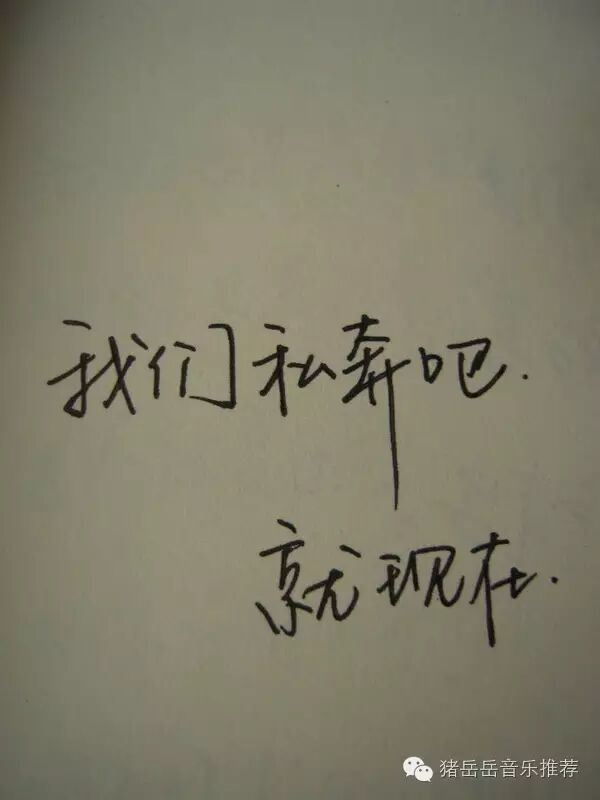 我们私奔吧.
就现在.
猪岳岳音乐推荐